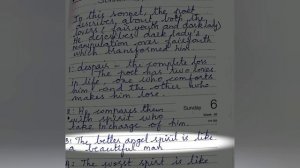 In this sonnet, the poet
describes about both the
lovers (fair youth and dark lady)
He describes dark lady's
manipulation over fair youth
which transformed him.
1: despair - the complete loss
The poet has two loves
in life one who comforts
him and the other who
makes him lose.
Sunday 6
2: He compares them
with spirit who
take in charge of him.
3: The better angel spirit is like
a beautiful man
4: The worst spirit is like